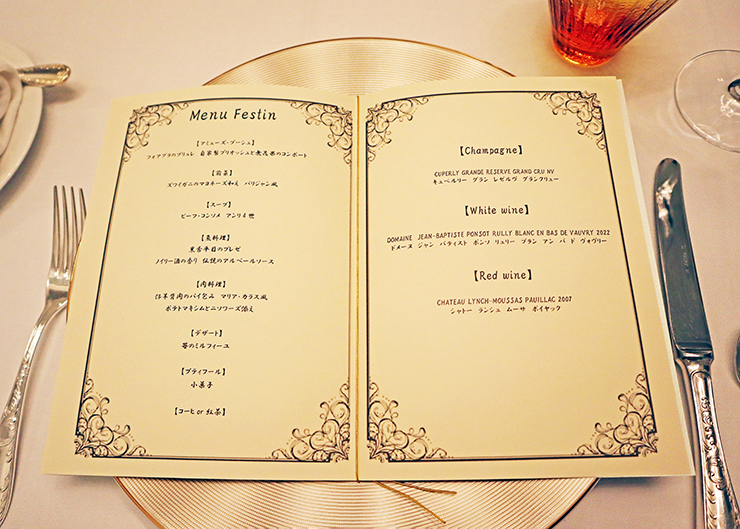 Menu Festin
【アミューズ・ブーシュ】
フォアグラのブリュレ 自家製ブリオッシュと無花果のコンポート
【前菜】
ズワイガニのマヨネーズ和え パリジャン風
【スープ】
ビーフ・コンソメ アンリ4世
【魚料理】
黒舌平目のブレゼ
ノイリー酒の香り 伝説のアルベールソース
【肉料理】
仔羊背肉のパイ包み マリア・カラス風
ポテトマキシムとニソワーズ添え
【デザート】
苺のミルフィーユ
【プティフール】
小菓子
【コーヒ or 紅茶】
【Champagne】
CUPERLY GRANDE RESERVE GRAND CRU NV
キュペルリー グラン レゼルヴ グランクリュー
【White wine】
DOMAINE JEAN-BAPTISTE PONSOT RULLY BLANC EN BAS DE VAUVRY 2022
ドメーヌ ジャン バティスト ポンソ リュリー ブラン アン バ ド ヴォヴリー
【Red wine】
CHATEAU LYNCH-MOUSSAS PAUILLAC 2007
シャトー ランシュ ムーサ ポイヤック